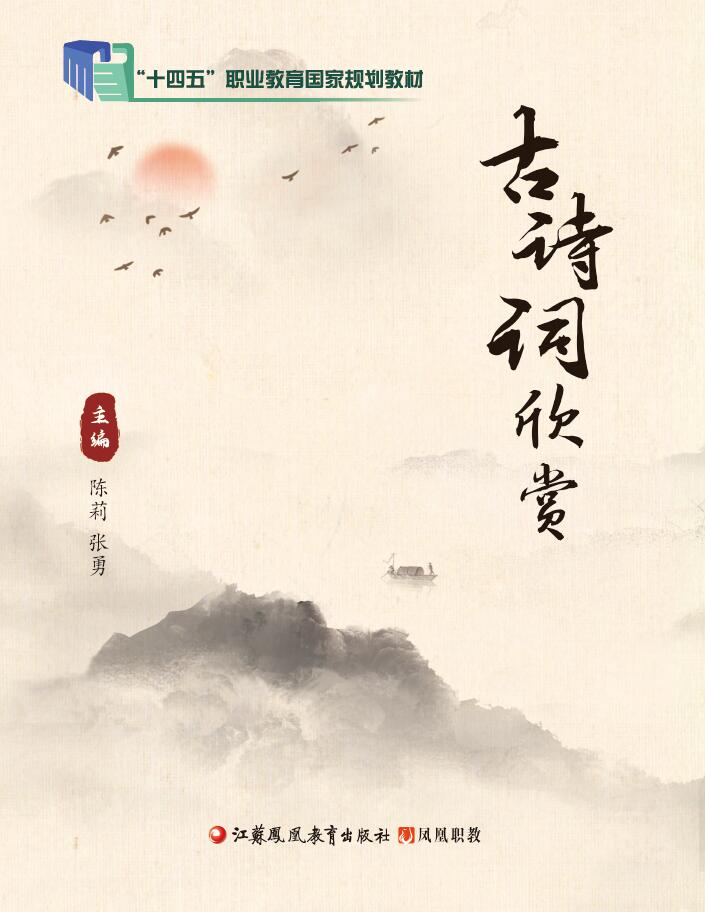 “十四五”职业教育国家规划教材
古诗词欣赏
主编
陈莉 张勇
江苏凤凰教育出版社 凤凰职教